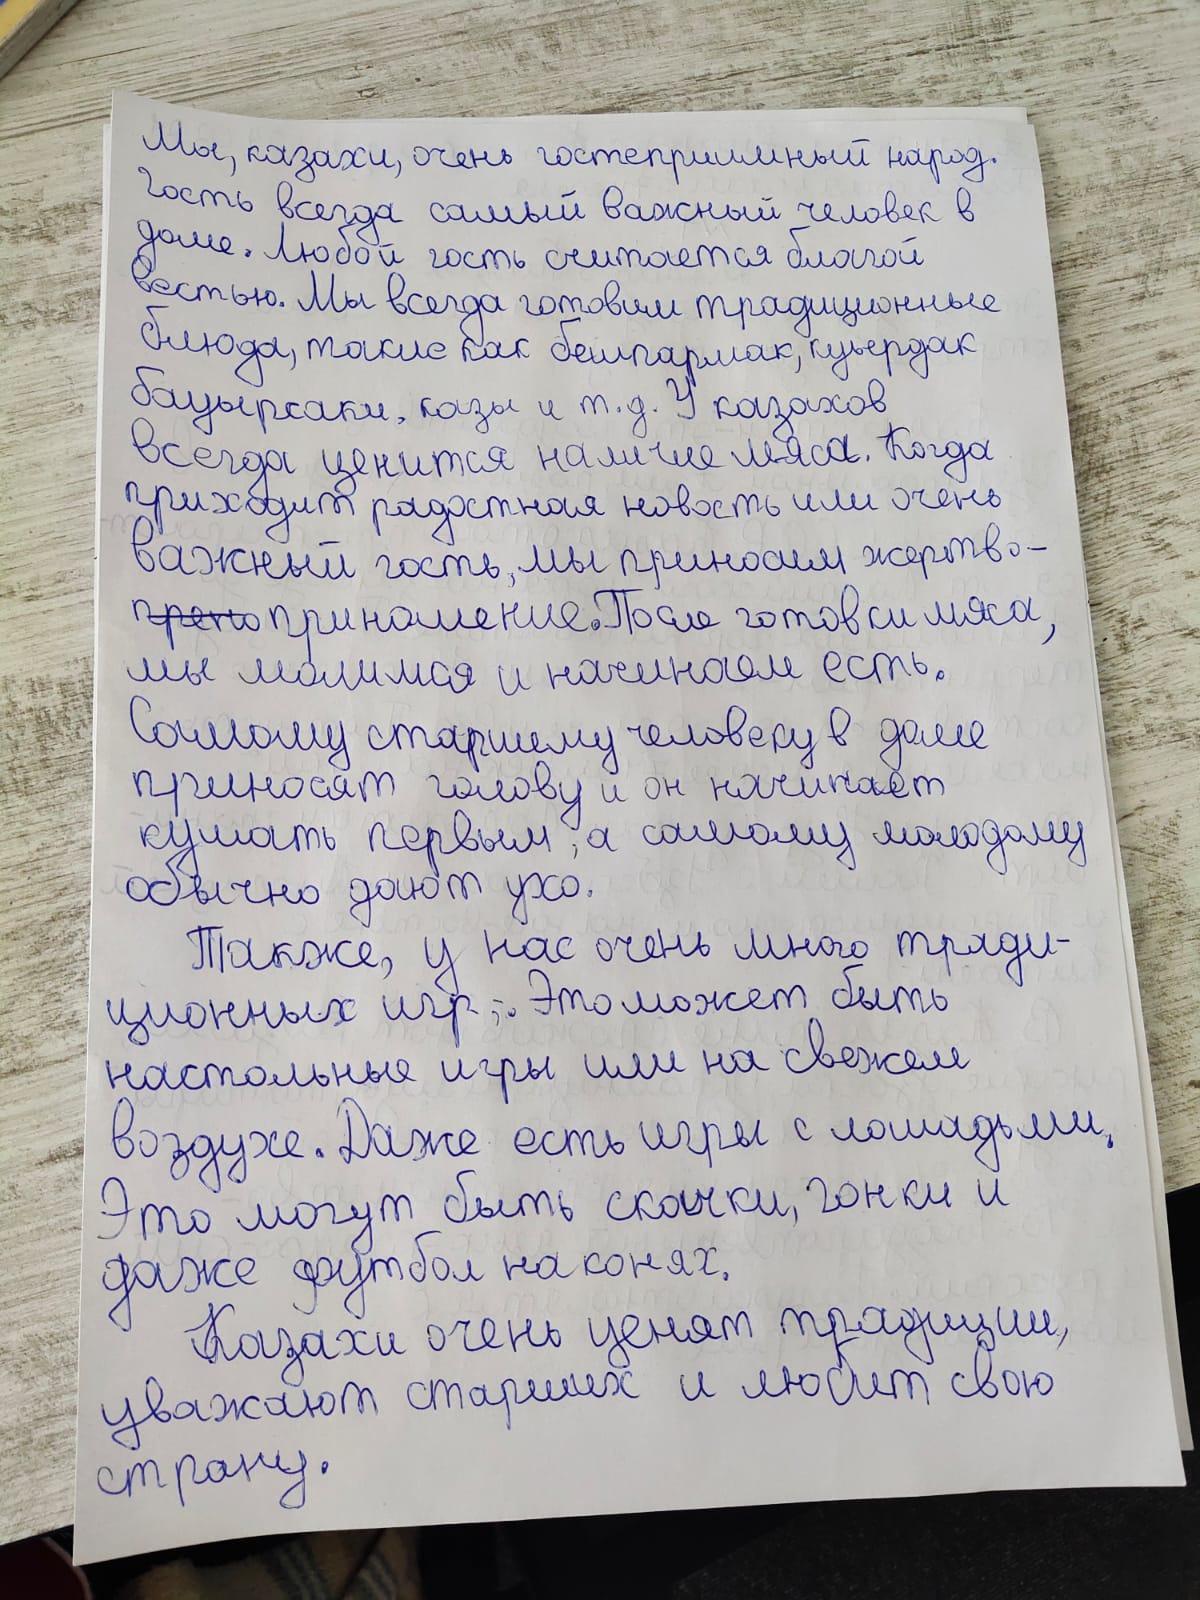 Мы, казахи, очень гостеприимный народ.
Гость всегда самый важный человек в
доме. Любой гость считается благой
вестью. Мы всегда готовим традиционные
блюда, такие как бешпармак, куьердак
бауырсаки, казы и т.д. У казахов
всегда ценится наличие мяса. Когда
приходит радостная новость или очень
важный гость, мы приносим жертво-
приношение. После готовки мяса,
мы молимся и начинаем есть.
Самому старшему человеку в доме
приносят голову и он начинает
кушать первым, а самому молодому
обычно дают ухо.
Также, у нас очень много тради-
ционных игр. Это может быть
настольные игры или на свежем
воздухе. Даже есть игры с лошадьми.
Это могут быть скачки, гонки и
даже футбол на конях.
Казахи очень ценят традиции,
уважают старших и любит свою
страну.